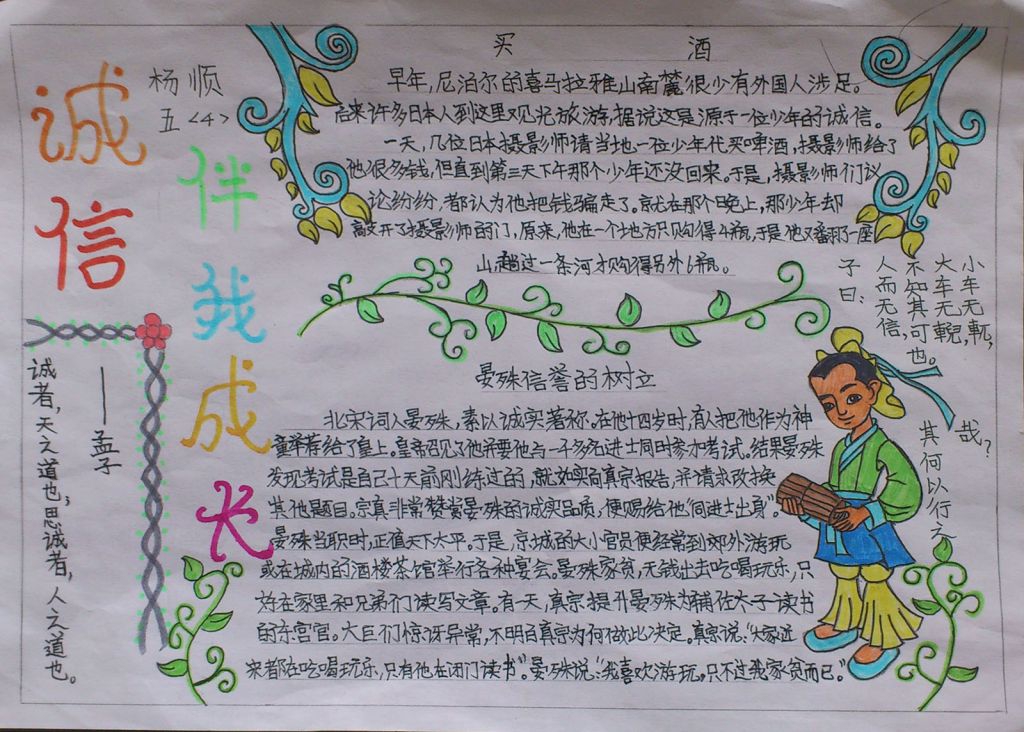 诚信
伴我成长
杨顺
五<4>
买酒
早年,尼泊尔的喜马拉雅山南麓很少有外国人涉足。
后来许多日本人到这里观光旅游,据说这是源于一位少年的诚信。
一天,几位日本摄影师请当地一位少年代买啤酒,摄影师给了
他很多钱,但直到第三天下午那个少年还没回来。于是,摄影师们议
论纷纷,都认为他把钱骗走了。就在那个晚上,那少年却
敲开了摄影师的门,原来,他在一个地方只购得4瓶,于是他又翻了一座
山,趟过一条河才购得另外6瓶。
小车无軏,
大车无輗,
不知其可也。
人而无信,
子曰:
其何以行之
哉?
诚者,天之道也;思诚者,人之道也。
——孟子
晏殊信誉的树立
北宋词人晏殊,素以诚实著称。在他十四岁时,有人把他作为神
童举荐给了皇上。皇帝召见了他并要他与一千多名进士同时参亦考试。结果晏殊
发现考试是自己十天前刚练过的,就如实向真宗报告,并请求改换
其他题目。宗真非常赞赏晏殊的诚实品质,便赐给他“同进士出身”。
晏殊当职时,正值天下太平。于是,京城的大小官员便经常到郊外游玩
或在城内的酒楼茶馆举行各种宴会。晏殊家贫,无钱出去吃喝玩乐,只
好在家里和兄弟们读写文章。有一天,真宗提升晏殊为辅佐太子读书
的东宫官。大臣们惊讶异常,不明白真宗为何做此决定。真宗说:“大家近
来都在吃喝玩乐,只有他在闭门读书”。晏殊说:“我喜欢游玩。只不过我家贫而已”。